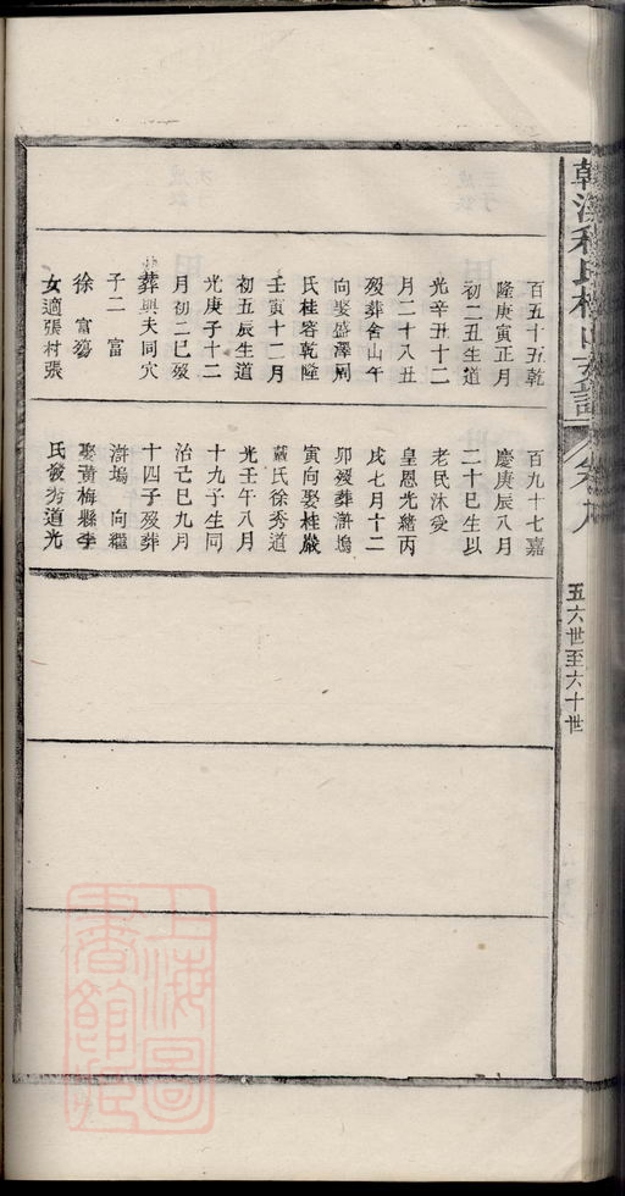 百五十五乾
隆庚寅正月
初二丑生道
光辛丑十二
月二十八丑
歿葬舍山午
向娶盛澤周
氏桂容乾隆
壬寅十二月
初五辰生道
光庚子十二
月初二巳歿
葬與夫同穴
子二 富
徐 富
女適張村張
百九十七嘉
慶庚辰八月
二十巳生以
老民沐受
皇恩光緒丙
戌七月十二
卯歿葬滸塢
寅向娶桂嚴
戴氏徐秀道
光壬午八月
十九子生同
治己巳九月
十四子歿葬
滸塢 向繼
娶黃梅縣李
氏 秀道光
五六世至六十世
上海圖
書館